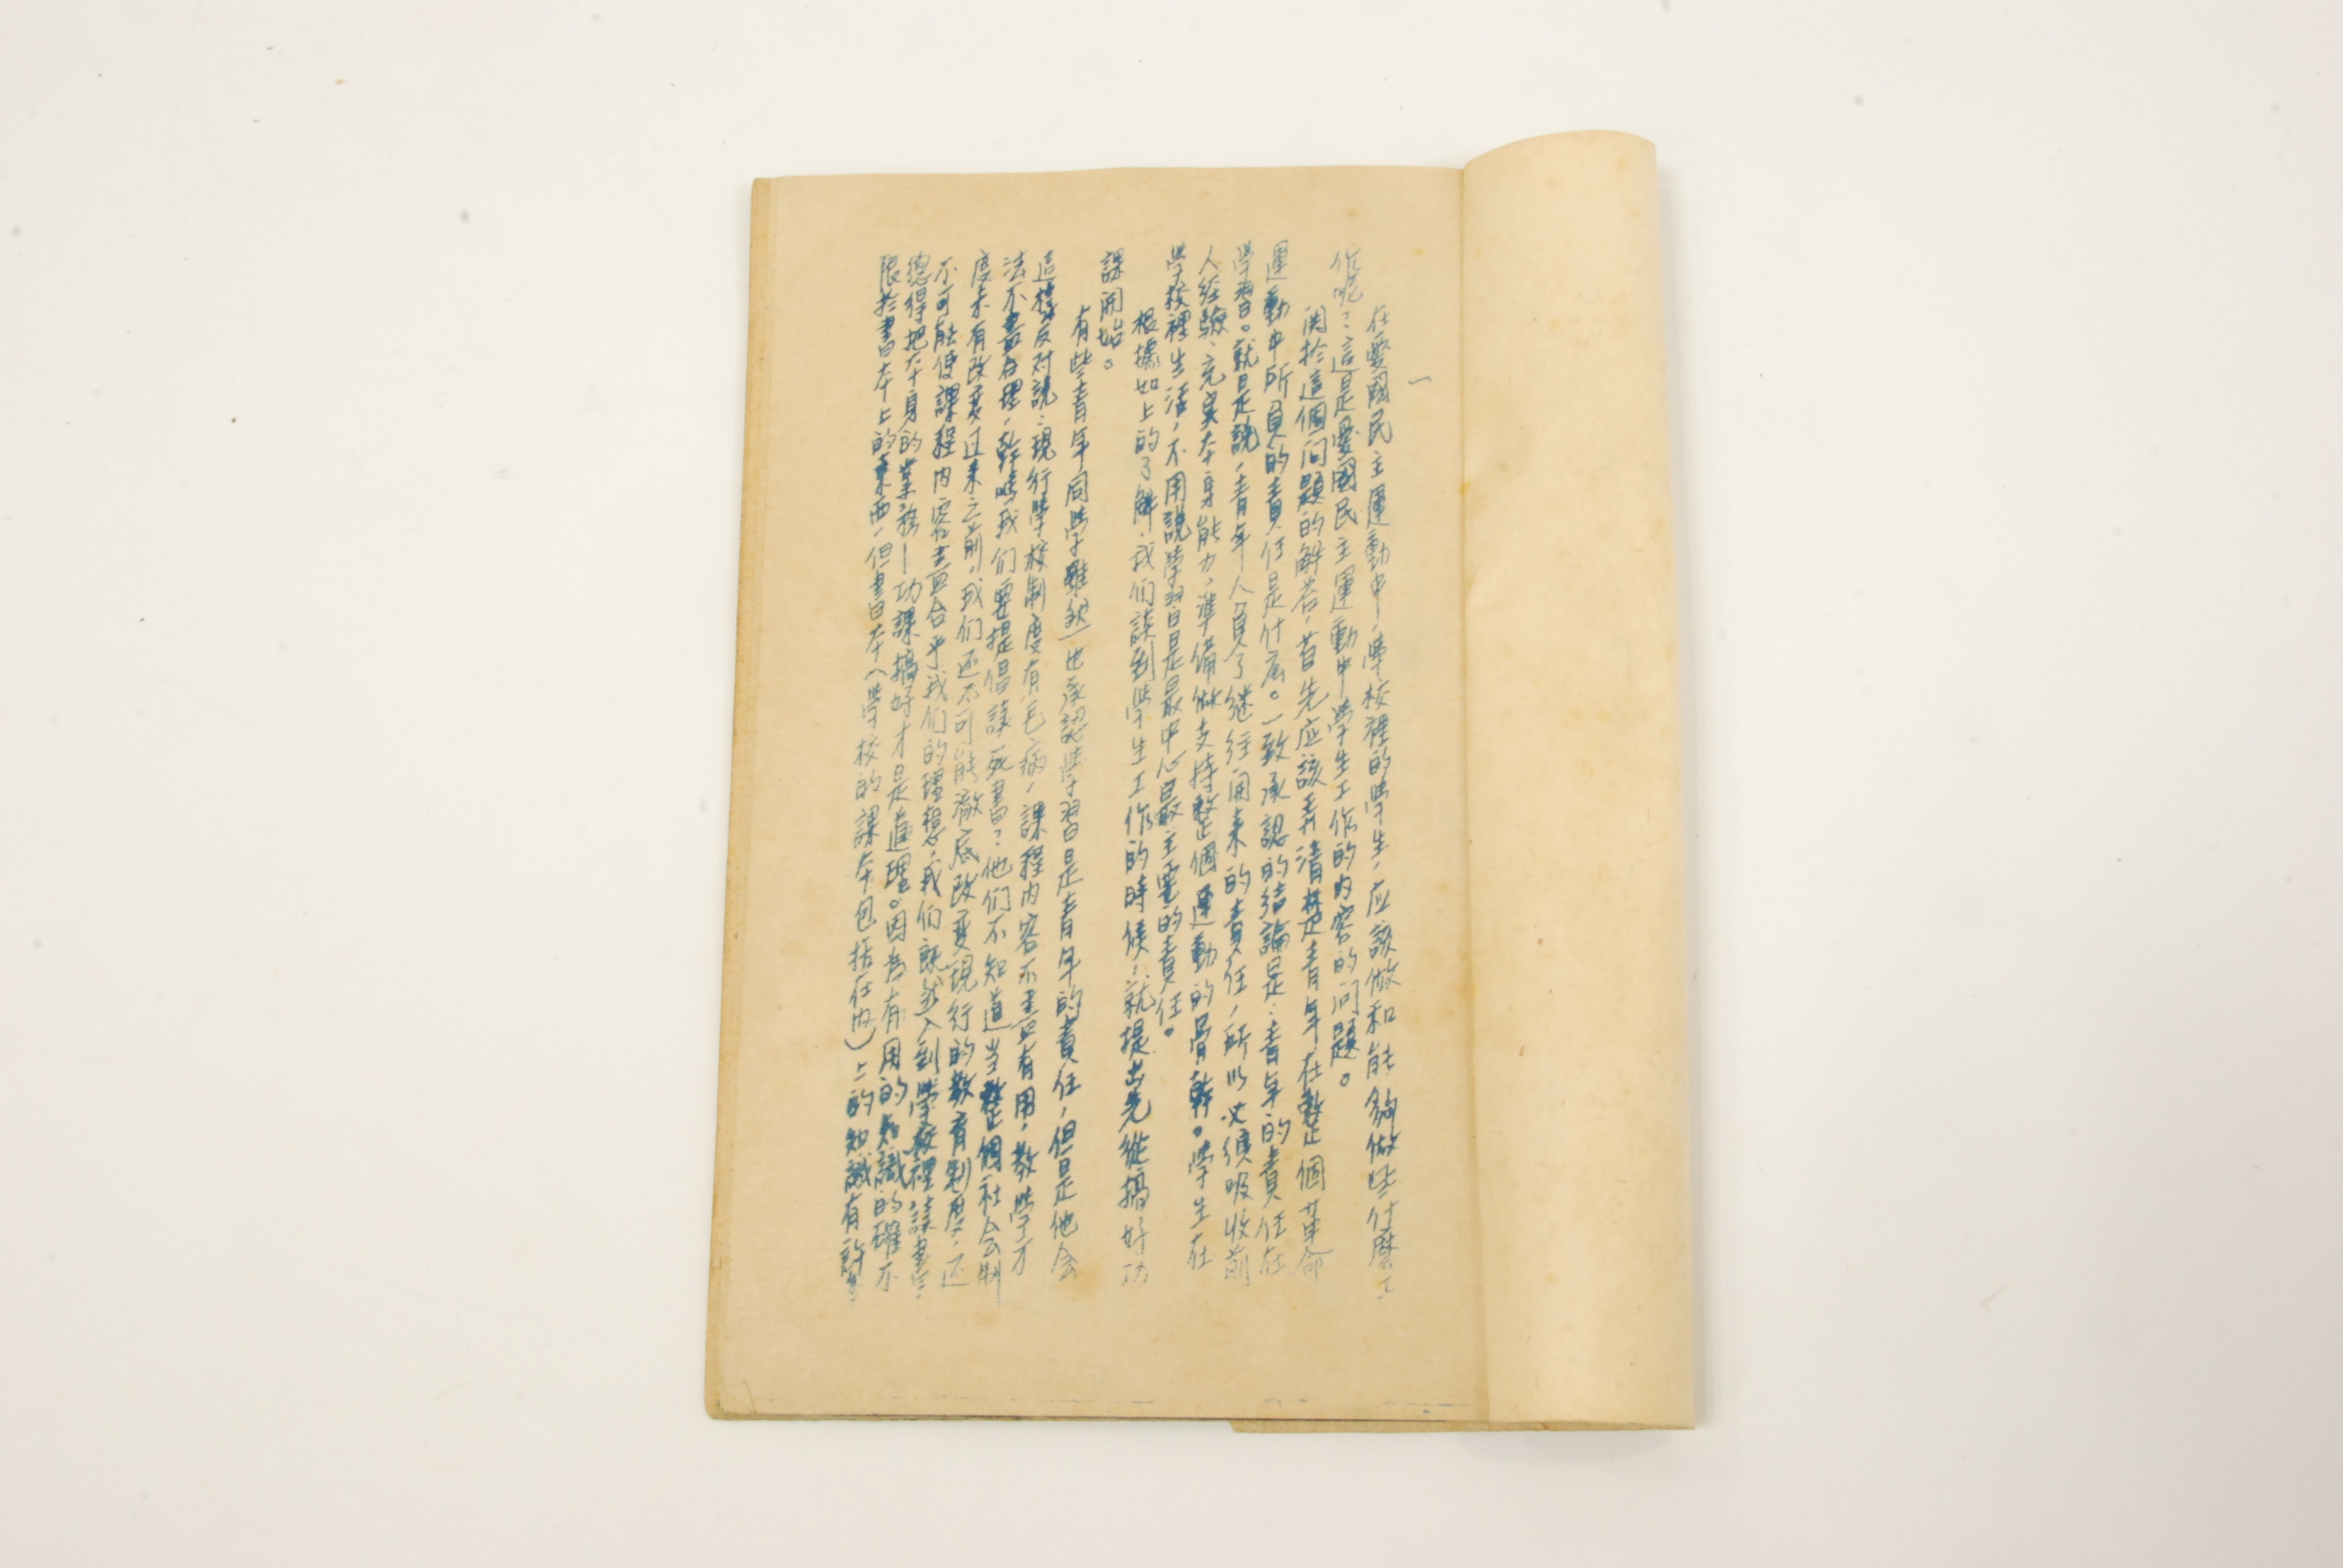 一
在愛國民主運動中，學校裡的學生，应該做和能夠做些什麼工
作呢？這是愛國民主運動中學生工作的內容的问題。
関於這個问題的解答，首先应該弄清楚青年在整個革命
運動中所負的責任是什庅。一致承認的結論是：青年的責任在
學習。就是説，青年人負了継往開来的責任，所以必須吸收前
人经驗、充实本身能力，準備做支持整個運動的骨幹。學生在
學校裡生活，不用説學習是最中心最主要的責任。
根據如上的了解，我们談到學生工作的時候，就提出先從搞好功
課開始。
有些青年同學雖然也承認學習是青年的責任，但是他会
這樣反对説：現行學校制度有毛病，課程内容不盡有用，教學方
法不盡合理，乾嗎我们要提倡讀死書？他们不知道当整個社会制
度未有改変过来之前，我们还不可能澈底改変現行的教育制度，还
不可能使課程内容盡合乎我们的理想，我们既然入到學校裡讀書，
總得把本身的業務—功課搞好才是道理。因為有用的知識的確不
限於書本上的東西，但書本（學校的課本包括在内）上的知識有許多